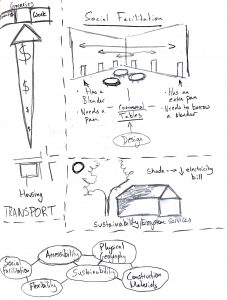 Groceries
Cook
Social Facilitation
$
$
$
$
• Has a
Blender
• Needs a
pan
Communal
Tables
• Has an
extra pan
• Needs to borrow
a blender
Design
Housing
TRANSPORT
Shade → ↓ electricity
bill
Sustainability/Ecosystem Services
Social
Facilitation
Accessibility
Physical
Geography
Flexibility
Sustainability
Construction
Materials